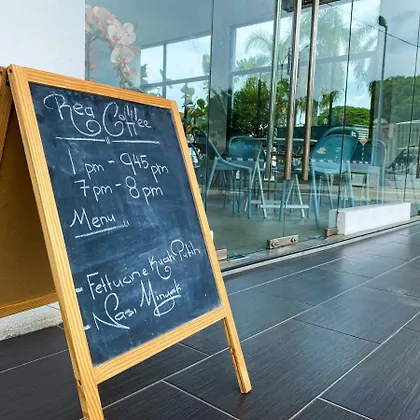 Rea Coffee
1 pm - 945 pm
7 pm - 8 pm
Menu
- Fettucine Kuah Putih
- Nasi Minyak